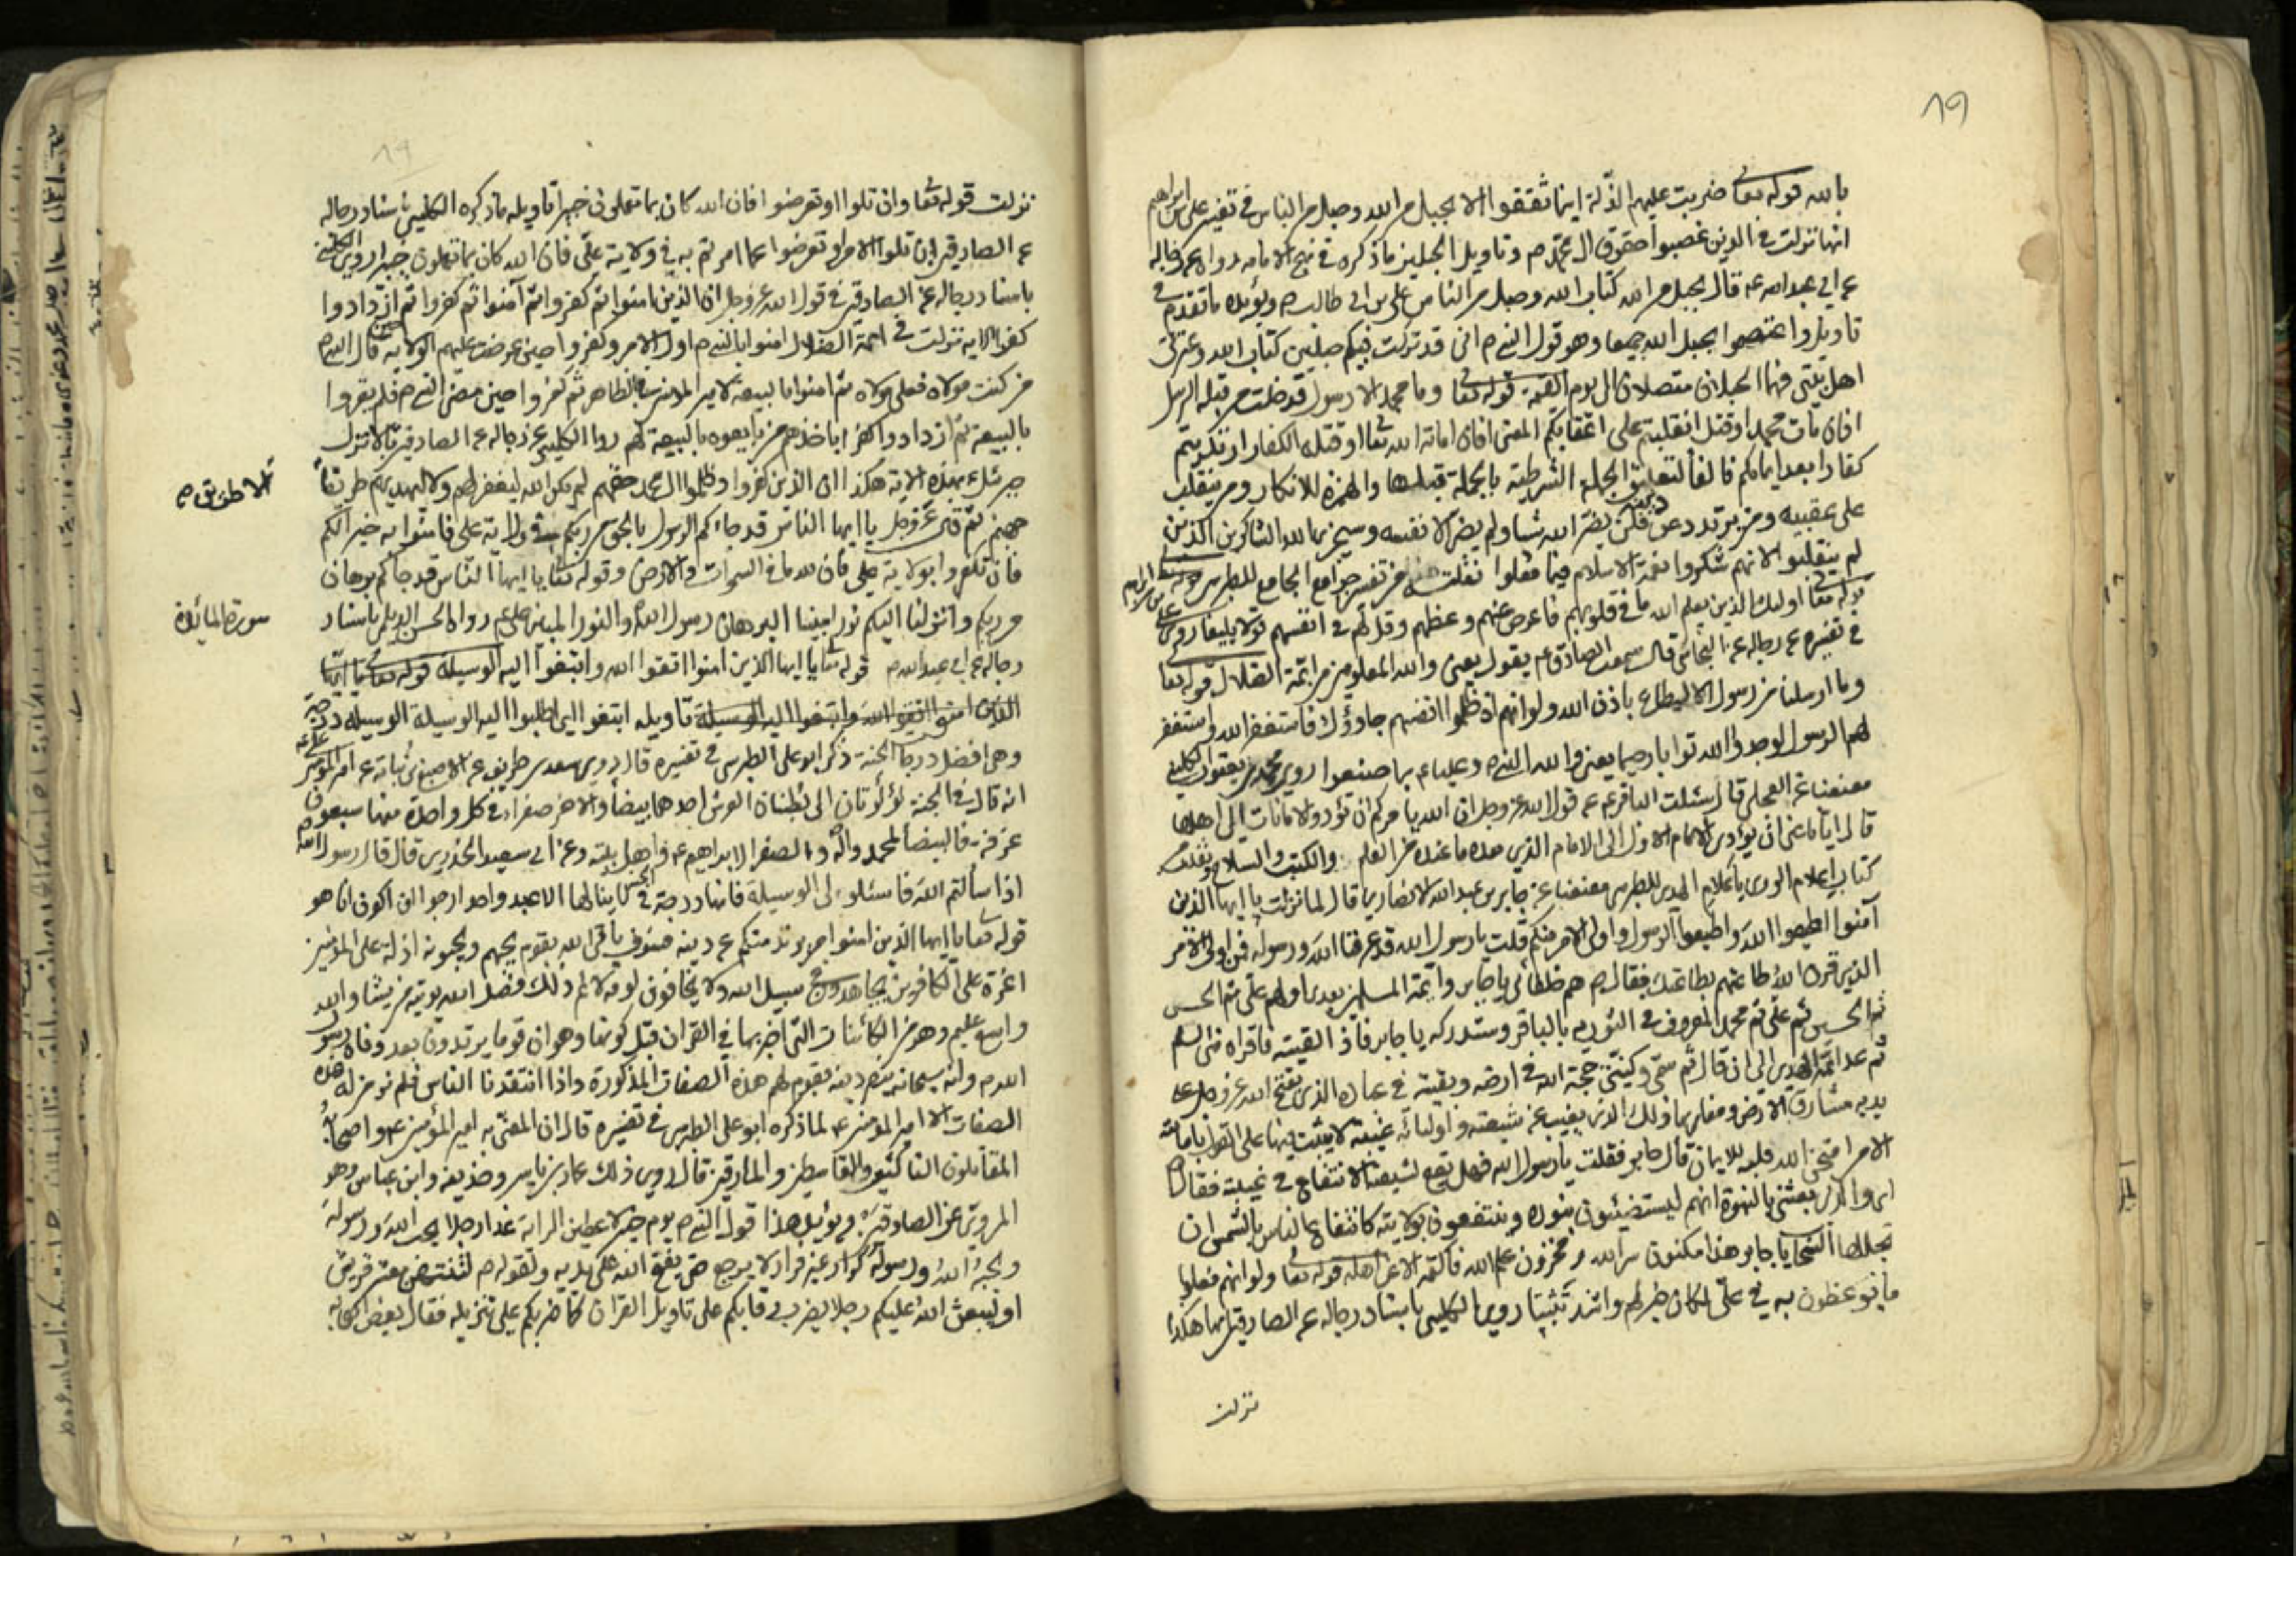 ١٩
بالله قوله تعالى ضربت عليهم الذلة اينما ثقفوا الا بحبل من الله وحبل من الناس في تفسير علي بن ابراهيم
انها نزلت في الذين غصبوا حقوق ال محمد م وتاويل الحبلين ما ذكره في نهج الامامه رواه عمر رجاله
عن ابي عبد الله ع قال بحبل من الله كتاب الله وحبل من الناس علي بن ابي طالب م ويؤيده ما تقدم في
تاويل واعتصموا بحبل الله جميعا وهو قول النبي م اني قد تركت فيكم حبلين كتاب الله وعترتي
اهل بيتي فهما الحبلان متصلان الى يوم القيمة قوله تعا وما محمد الا رسول قد خلت من قبله الرسل
افان مات محمد او قتل انقلبتم على اعقابكم المعنى افان اماته الله تعا او قتله الكفار ارتددتم
كفارا بعد ايمانكم فالفا لتعليق الجملة الشرطية بالجملة قبلها والهمزة للانكار ومن ينقلب
على عقبيه ومن يرتدد عن دينه فلن يضر الله شيا ولم يضر الا نفسه وسيجزي الله الشاكرين الذين
لم ينقلبوا لانهم شكروا نعمة الاسلام فيما فعلوا نقلت من تفسير جوامع الجامع للطبرسي
قوله تعا اولئك الذين يعلم الله ما في قلوبهم فاعرض عنهم وعظهم وقل لهم في انفسهم قولا بليغا روى علي بن ابراهيم
في تفسيره عن رجاله عن النجاشي قال سمعت الصادق ع يقول يعني والله المعلومين من ائمة الضلال قوله تعا
وما ارسلنا من رسول الا ليطاع باذن الله ولو انهم اذ ظلموا انفسهم جاؤوك فاستغفر الله واستغفر
لهم الرسول لوجدوا الله توابا رحيما يعني والله النبي م وعليا ع بما صنعوا روى محمد بن يعقوب الكليني
معنعنا عن العجلي قال سئلت الباقر ع عن قول الله عز وجل ان الله يامركم ان تؤدوا الامانات الى اهلها
قال ايانا عنى ان يؤدي الامام الاول الى الامام الذي بعده ما عنده من العلم والكتب والسلاح ونقلت من
كتاب اعلام الورى باعلام الهدى للطبرسي معنعنا عن جابر بن عبد الله الانصاري قال لما نزلت يا ايها الذين
آمنوا اطيعوا الله واطيعوا الرسول واولي الامر منكم قلت يا رسول الله قد عرفنا الله ورسوله فمن اولي الامر
الذين قرن الله طاعتهم بطاعتك فقال م هم خلفائي يا جابر وائمة المسلمين بعدي اولهم علي ثم الحسن
ثم الحسين ثم علي ثم محمد المعروف في التورية بالباقر وستدركه يا جابر فاذا لقيته فاقراه مني السلم
ثم عد ائمة الهدى الى ان قال ثم سميي وكنيتي حجة الله في ارضه وبقيته في عباده الذي يفتح الله عز وجل على
يديه مشارق الارض ومغاربها ذلك الذي يغيب عن شيعته واوليائه غيبة لا يثبت فيها على القول بامامته
الا من امتحن الله قلبه للايمان قال جابر فقلت يا رسول الله فهل يقع لشيعته الانتفاع في غيبته فقال م
اي والذي بعثني بالنبوة انهم ليستضيئون بنوره وينتفعون بولايته كانتفاع الناس بالشمس ان
تجللها السحاب يا جابر هذا مكنون سر الله ومخزون علم الله فاكتمه الا عن اهله قوله تعا ولو انهم فعلوا
ما يوعظون به في علي لكان خيرا لهم واشد تثبيتا روى الكليني باسناد رجاله عن الصادق انها هكذا
نزلت
نزلت قوله تعا وان تلوا او تعرضوا فان الله كان بما تعملون خبيرا تاويله ما ذكره الكليني باسناد رجاله
عن الصادق ان تلوا الامر او تعرضوا عما امرتم به في ولاية علي فان الله كان بما تعملون خبيرا روى الكليني
باسناد رجاله عن الصادق في قول الله عز وجل ان الذين امنوا ثم كفروا ثم آمنوا ثم كفروا ثم ازدادوا
كفرا الاية نزلت في ائمة الضلال امنوا بالنبي م اول الامر وكفروا حين عرضت عليهم الولاية حين قال النبي م
من كنت مولاه فعلي مولاه ثم امنوا بالبيعة لامير المؤمنين بالظاهر ثم كفروا حين مضى النبي م فلم يقروا
بالبيعة ثم ازدادوا كفرا باخذهم من بايعوه بالبيعة لهم روا الكليني عن رجاله عن الصادق قال نزل
جبرئيل ع بهذه الاية هكذا ان الذين كفروا وظلموا ال محمد حقهم لم يكن الله ليغفر لهم ولا ليهديهم طريقا
الا طريق
جهنم ثم قال عز وجل يا ايها الناس قد جاءكم الرسول بالحق من ربكم في ولاية علي فامنوا به خيرا لكم
فان تكفروا بولاية علي فان لله ما في السموات والارض وقوله تعا يا ايها الناس قد جاكم برهان
من ربكم وانزلنا اليكم نورا مبينا البرهان رسول الله والنور المبين علي ع رواه الحسن الديلمي باسناد
سورة المائدة
رجاله عن ابي عبد الله م قوله تعا يا ايها الذين امنوا اتقوا الله وابتغوا اليه الوسيلة قوله تعا يا ايها
الذين امنوا اتقوا الله وابتغوا اليه الوسيلة تاويله ابتغوا اي اطلبوا اليه الوسيلة الوسيلة درجة
وهي افضل درجات الجنة ذكر ابو علي الطبرسي في تفسيره قال روى سعد بن طريف عن الاصبغ بن نباته عن امير المؤمنين علي ع
انه قال في الجنة لؤلؤتان الى بطنان العرش احدهما بيضا والاخر صفراء في كل واحدة منها سبعون
غرفة فالبيضا لمحمد وآله والصفرا لابراهيم ع واهل بيته وعن ابي سعيد الخدري قال قال رسول الله
اذا سالتم الله فاسئلوه لي الوسيلة فانها درجة في الجنة لا ينالها الا عبد واحد ارجوا ان اكون انا هو
قوله تعا يا ايها الذين امنوا من يرتد منكم عن دينه فسوف ياتي الله بقوم يحبهم ويحبونه اذلة على المؤمنين
اعزة على الكافرين يجاهدون في سبيل الله ولا يخافون لومة لائم ذلك فضل الله يوتيه من يشا والله
واسع عليم وهو من الكائنات التي اخبر بها في القران قبل كونها وهو ان قوما يرتدون بعد وفاه رسول
الله م وانه سبحانه ينصر دينه بقوم لهم هذه الصفات المذكورة واذا انتقدنا الناس فلم نر من له هذه
الصفات الا امير المؤمنين ع لما ذكره ابو علي الطبرسي في تفسيره قال ان المعني به امير المؤمنين ع واصحابه
المقاتلون الناكثين والقاسطين والمارقين قال روى ذلك عمار بن ياسر وحذيفه وابن عباس وهو
المروي عن الصادقين ويؤيد هذا قول النبي م يوم خيبر لاعطين الراية غدا رجلا يحب الله ورسوله
ويحبه الله ورسوله كرار غير فرار لا يرجع حتى يفتح الله على يديه ولقوله م لتنتهن معشر قريش
او ليبعثن الله عليكم رجلا يضرب رقابكم على تاويل القران كما ضربتكم على تنزيله فقال بعض اصحابه